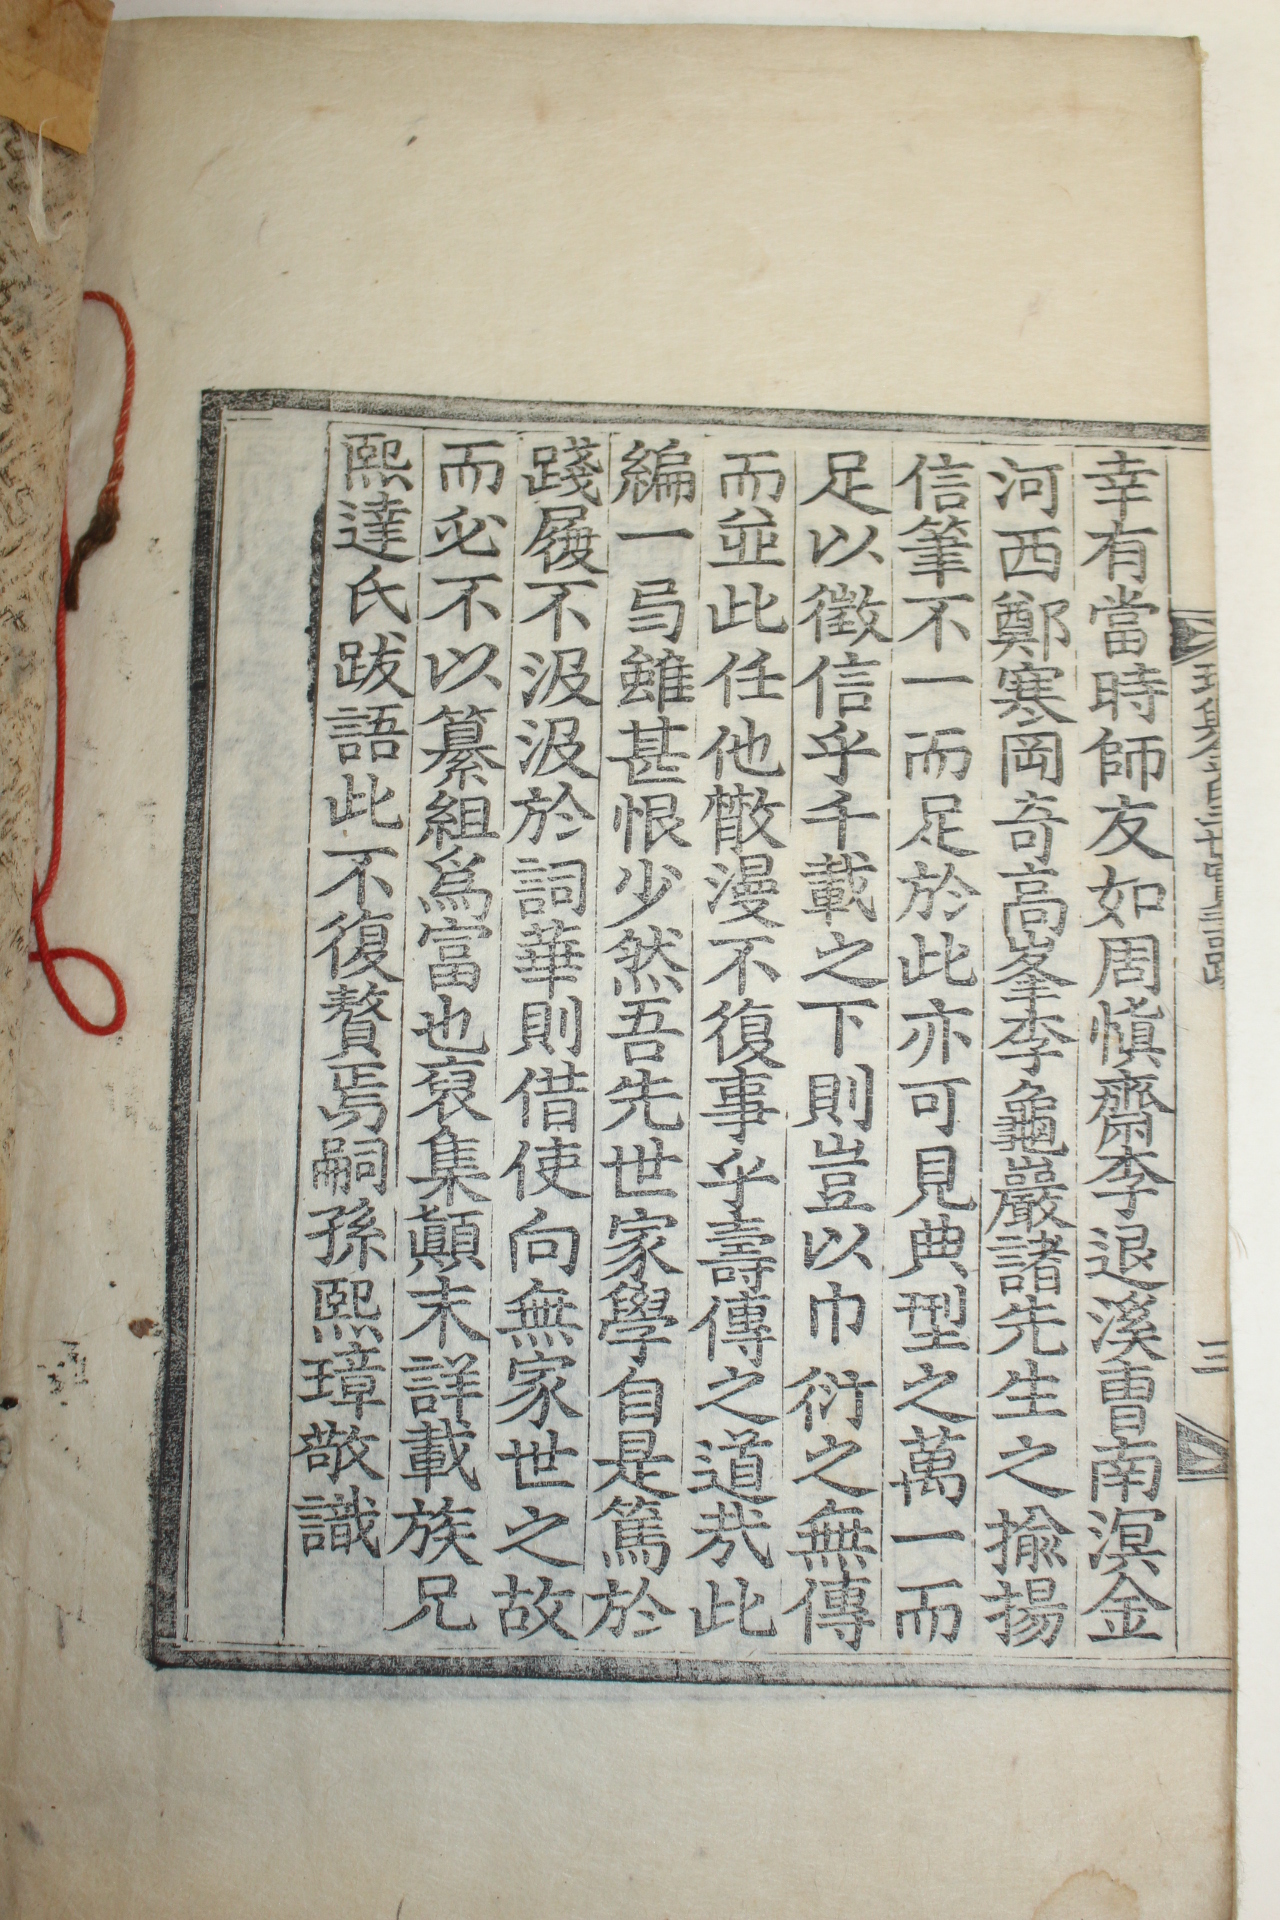 幸有當時師友如周愼齋李退溪曺南溟金
河西鄭寒岡奇高峯李龜巖諸先生之揄揚
信筆不一而足於此亦可見典型之萬一而
足以徵信乎千載之下則豈以巾衍之無傳
而並此任他散漫不復事乎壽傳之道㢤此
編一弓雖甚恨少然吾先世家學自是篤於
踐履不汲汲於詞華則借使向無家世之故
而必不以纂組爲富也裒集顚末詳載族兄
熙達氏跋語此不復贅焉嗣孫熙璋敬識
三